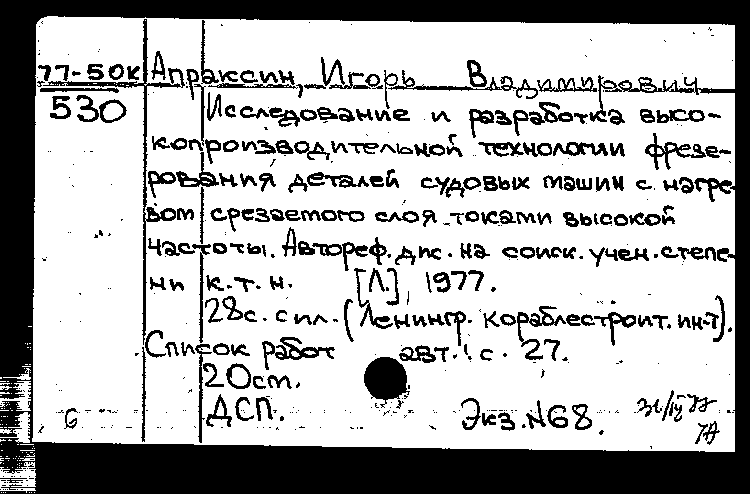 77-50к Апраксин, Игорь Владимирович
530 Исследование и разработка высо-
копроизводительной технологии фрезе-
рования деталей судовых машин с нагре-
вом срезаемого слоя токами высокой
частоты. Автореф. дис. на соиск. учен. степе-
ни к.т.н. [Л.], 1977.
28с. с ил. (Ленингр. кораблестроит. ин-т).
Список работ авт.: с. 27.
20см.
ДСП. Экз. №68.
6